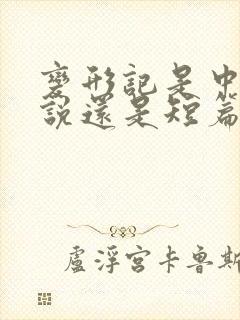 變形記是中
說還是短篇
盧浮宮卡魯斯